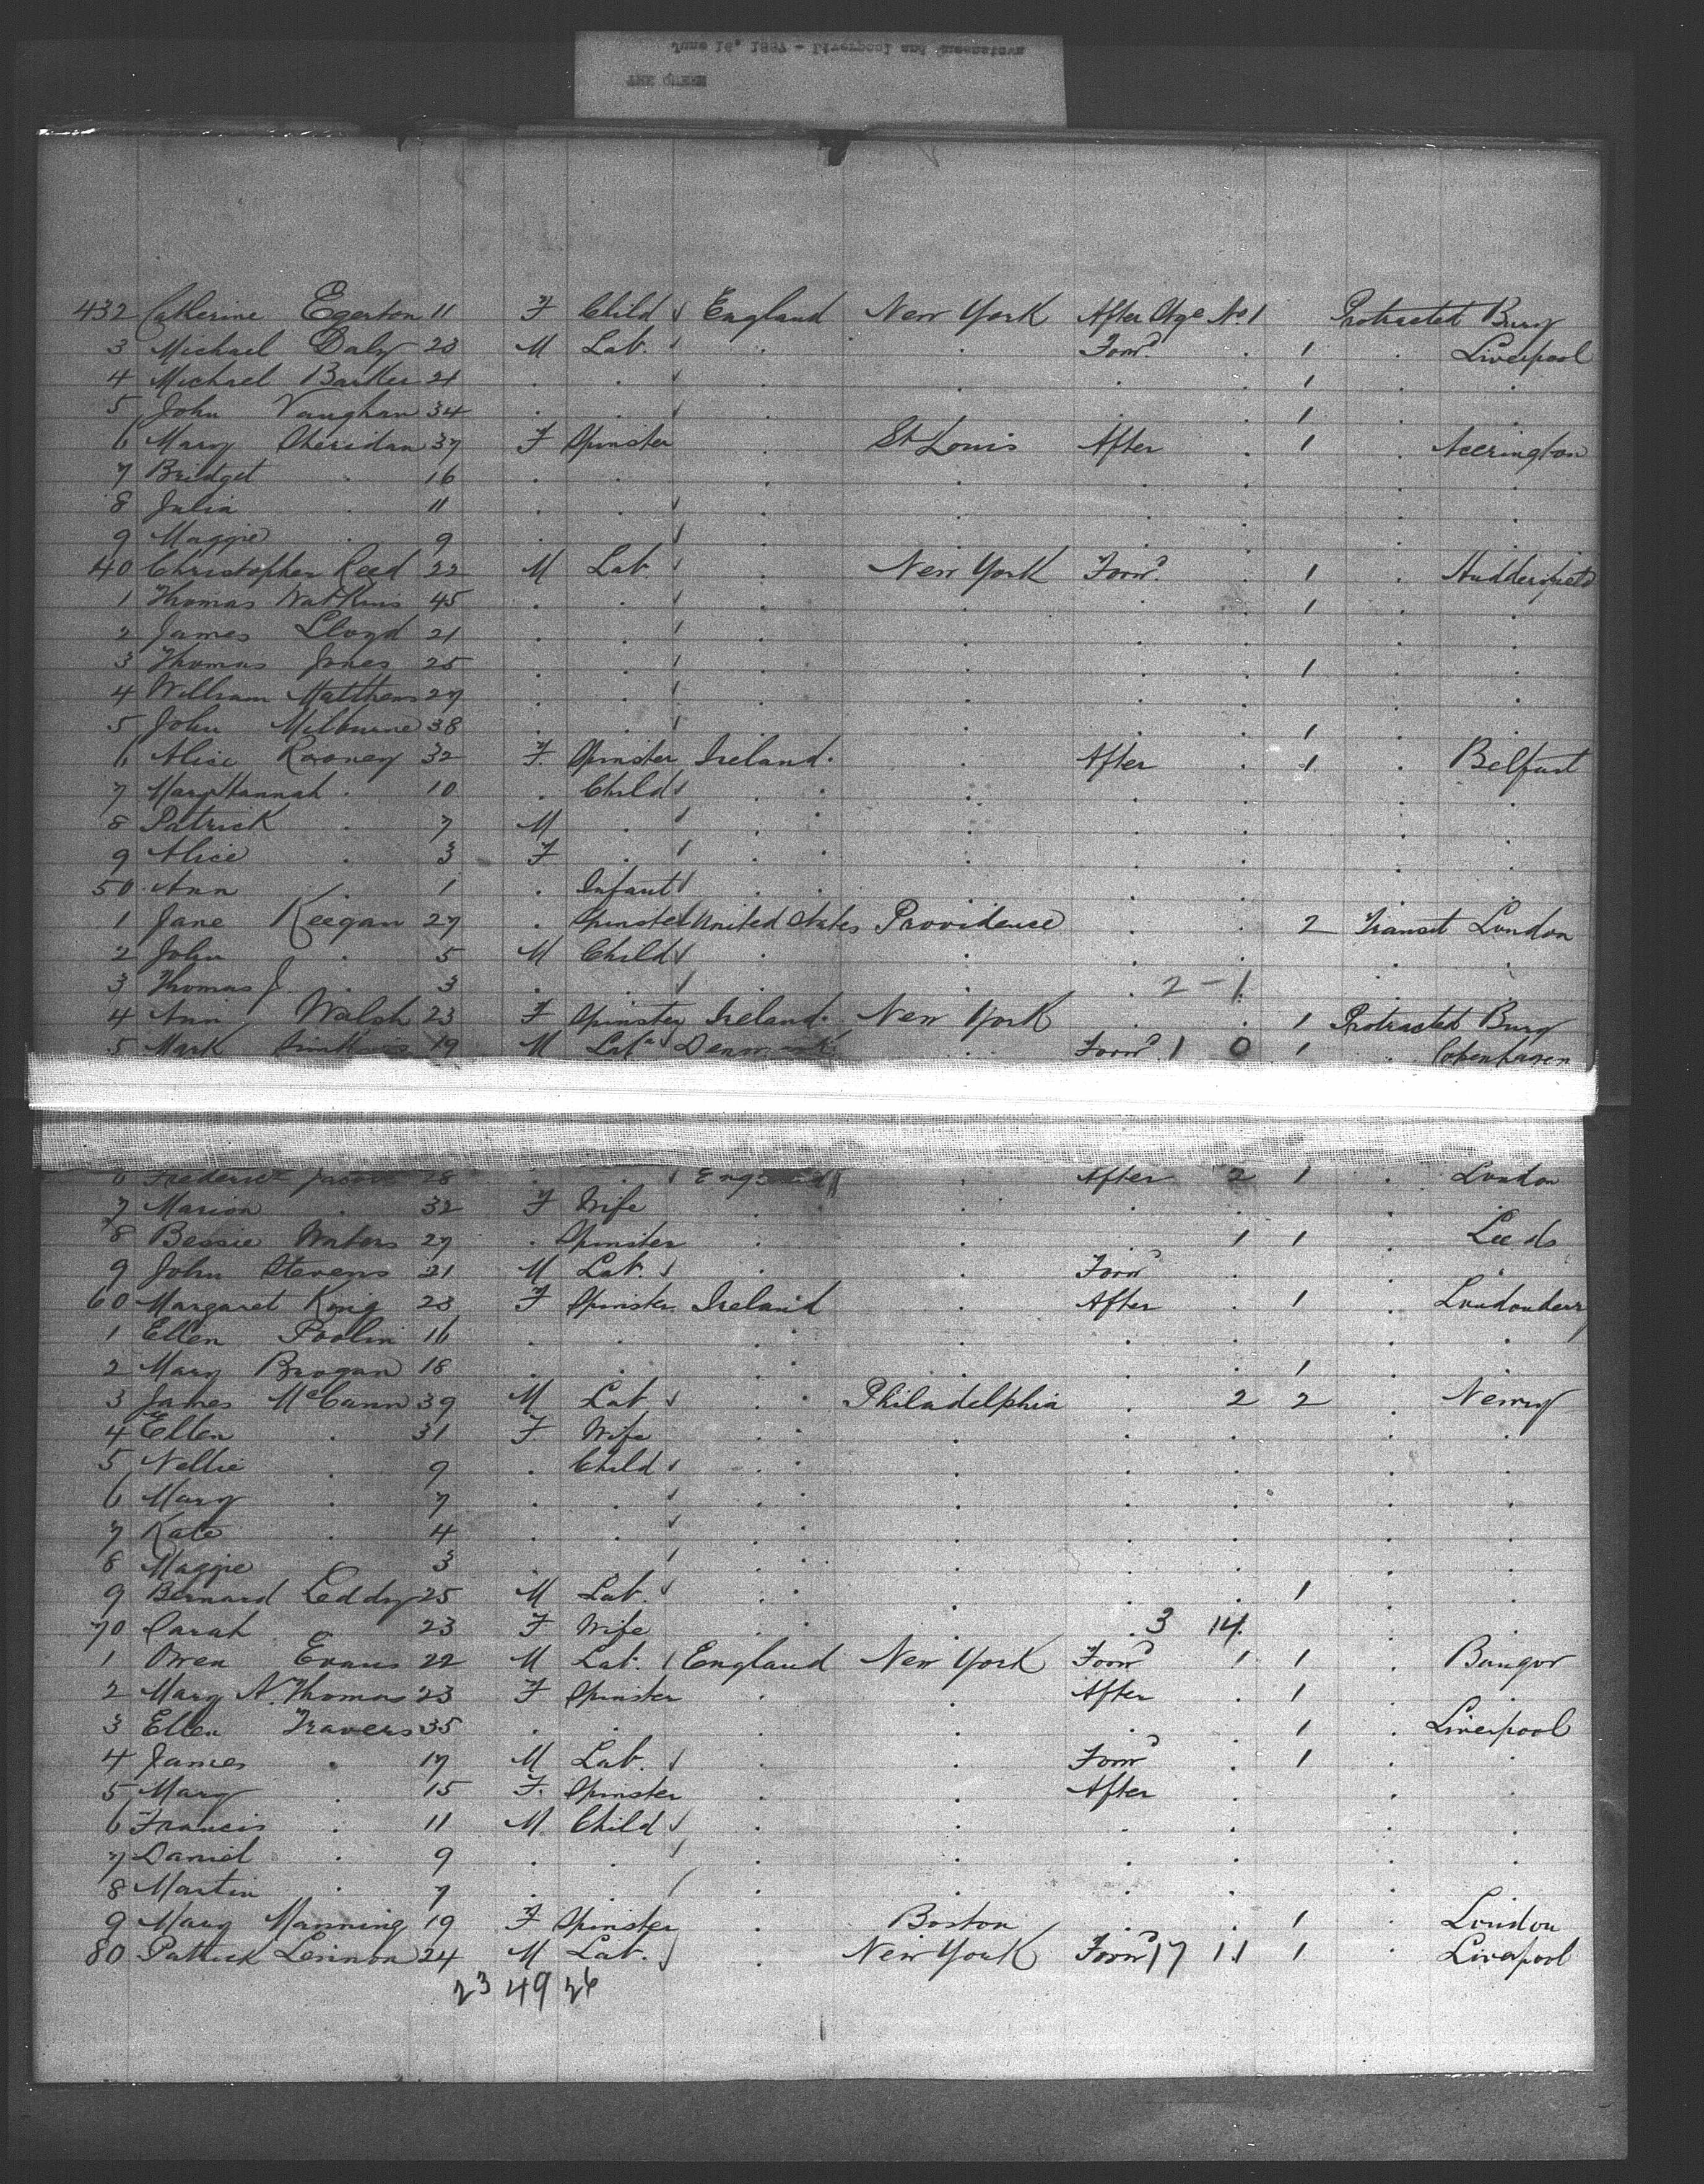 June 16, 1887 - Liverpool and Queenstown
THE QUEEN
432 Catherine Egerton 11 F Child England New York After Stge No 1 Protracted Bury
3 Michael Daly 23 M Lab. . . Forwd . 1 . Liverpool
4 Michael Barker 21 . . . . . . 1 . .
5 John Vaughan 34 . . . . . . 1 . .
6 Mary Sheridan 37 F Spinster . St Louis After . 1 . Accrington
7 Bridget . 16 . . . . . . . .
8 Julia . 11 . . . . . . . .
9 Maggie . 9 . . . . . . . .
40 Christopher Reed 22 M Lab. . New York Forwd . 1 . Huddersfield
1 Thomas Watkins 45 . . . . . . 1 . .
2 James Lloyd 21 . . . . . . . .
3 Thomas Jones 25 . . . . . . 1 . .
4 William Matthews 27 . . . . . . . .
5 John Milburne 38 . . . . . . 1 . .
6 Alice Rooney 32 F. Spinster Ireland . After . 1 . Belfast
7 Mary Hannah . 10 . Child . . . . . .
8 Patrick . 7 M . . . . . . .
9 Alice . 3 F . . . . . . .
50 Ann . 1 . Infant . . . . . .
1 Jane Keegan 27 . Spinster United States Providence . . 2 Transit London
2 John . 5 M Child . . . . . .
3 Thomas J. . 3 . . . . . 2 - 1 . .
4 Ann Walsh 23 F Spinster Ireland New York . . 1 Protracted Bury
5 Mark 19 M Labr Denmark . Forwd 1 0 1 . Copenhagen
6 Frederick 28 . . England . After 2 1 . London
7 Marion . 32 F Wife . . . . . .
8 Bessie Waters 27 . Spinster . . . 1 1 . Leeds
9 John Stevens 21 M Lab. . . Forwd . . .
60 Margaret King 23 F Spinster Ireland . After . 1 . Londonderry
1 Ellen 16 . . . . . . . .
2 Mary Brogan 18 . . . . . . 1 . .
3 James McCann 39 M Lab . Philadelphia . 2 2 . Newry
4 Ellen . 31 F. Wife . . . . . .
5 Nellie . 9 . Child . . . . . .
6 Mary . 7 . . . . . . . .
7 Kate . 4 . . . . . . . .
8 Maggie 3 . . . . . . . .
9 Bernard Leddy 25 M Lab. . . . . 1 . .
70 Sarah . 23 F Wife . . . 3 14. . .
1 Owen Evans 22 M Lab. England New York Forwd 1 1 . Bangor
2 Mary A. Thomas 23 F Spinster . . After . 1 . .
3 Ellen Travers 35 . . . . . . 1 . Liverpool
4 James . 17 M Lab. . . Forwd . 1 . .
5 Mary . 15 F. Spinster . . After . . .
6 Francis . 11 M Child . . . . . .
7 Daniel . 9 . . . . . . . .
8 Martin . 7 . . . . . . . .
9 Mary Manning 19 F Spinster . Boston . . 1 . London
80 Patrick Lennon 24 M Lab. . New York Forwd 17 11 1 . Liverpool
23 49 26